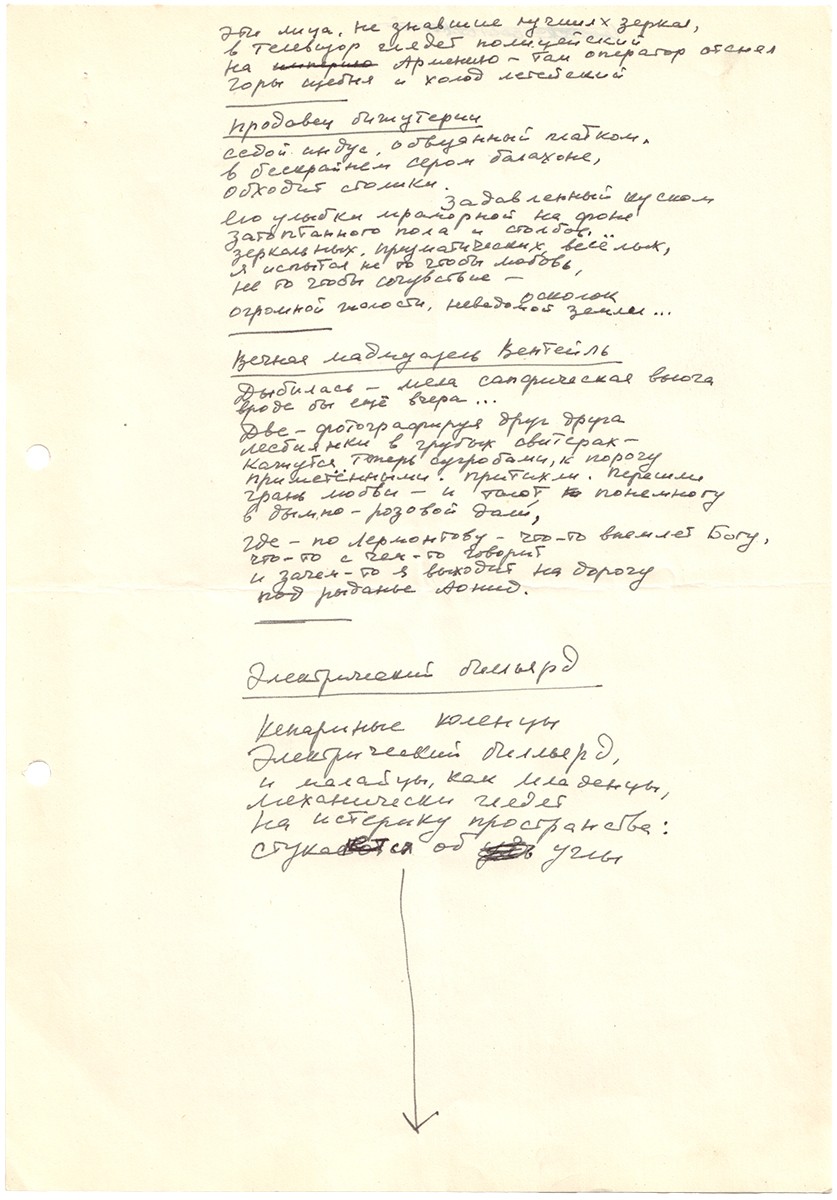 эти лица, не знавшие лучших зеркал,
в телевизор глядят полицейский
на империю Армению – там оператор отснял
горы щебня и холод летейский
Продавец бижутерии
седой индус, обвязанный платком,
в бескрайнем сером балахоне,
обходит столики.
задавленный куском
его улыбки мраморной на фоне
затоптанного пола и столбов...
зеркальных, призматических, весёлых,
я испытал не то чтобы любовь,
не то чтобы сочувствие –
осколок
огромной жалости, неведомой земли...
Вечная мадмуазель Вентейль
Дыбилась – мела сапфическая вьюга
вроде бы ещё вчера...
Две – фотографируя друг друга
лесбиянки в грубых свитерах –
кажутся теперь сугробами, к порогу
приметёнными. Притихли. Перешли
грань любви – и тают, понемногу
в дымно-розовой дали,
где – по Лермонтову – что-то внемлет Богу,
что-то с чем-то говорит
и зачем-то я выходит на дорогу
под рыданье Аонид.
Электрический бильярд
Электрический биллиард,
и малайцы, как младенцы,
механически глядят
на истерику пространства:
об углы